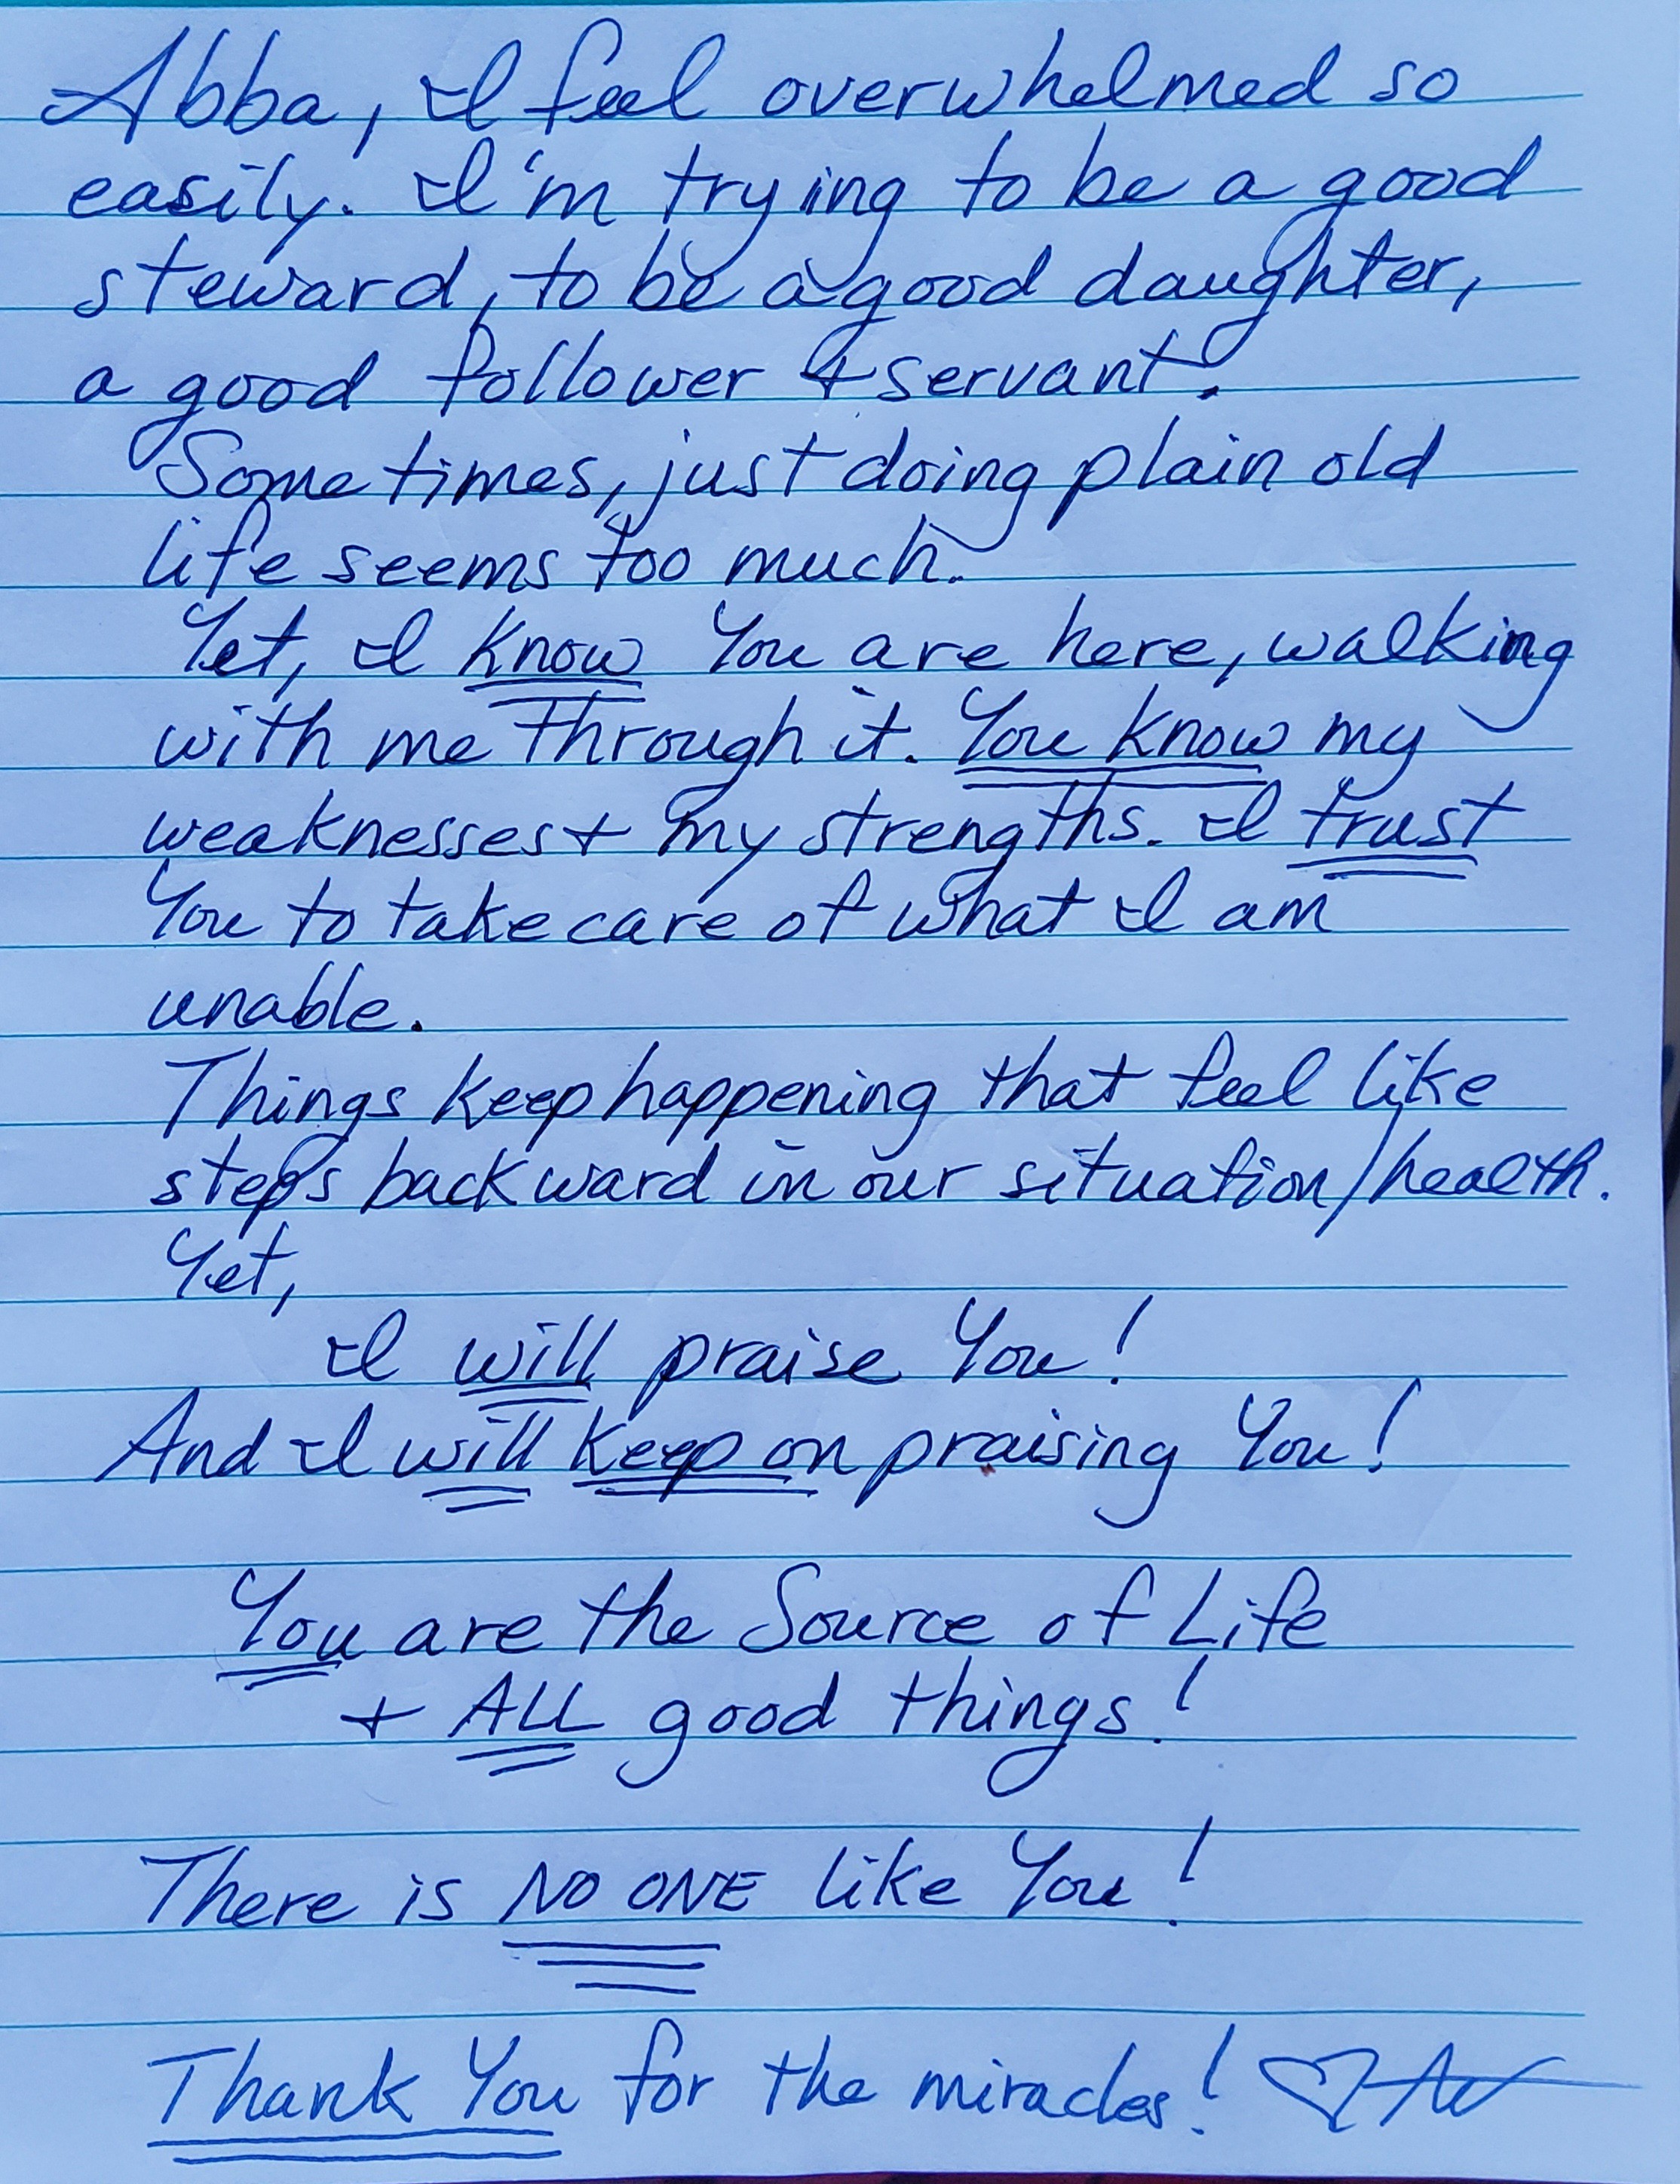 Abba, I feel overwhelmed so
easily. I'm trying to be a good
steward, to be a good daughter,
a good follower + servant.
Sometimes, just doing plain old
life seems too much.
Yet, I know You are here, walking
with me through it. You know my
weaknesses + my strengths. I trust
You to take care of what I am
unable.
Things keep happening that feel like
steps backward in our situation/health.
Yet,
I will praise You!
And I will keep on praising You!
You are the Source of Life
+ ALL good things!
There is NO ONE like You!
Thank You for the miracles! ♡